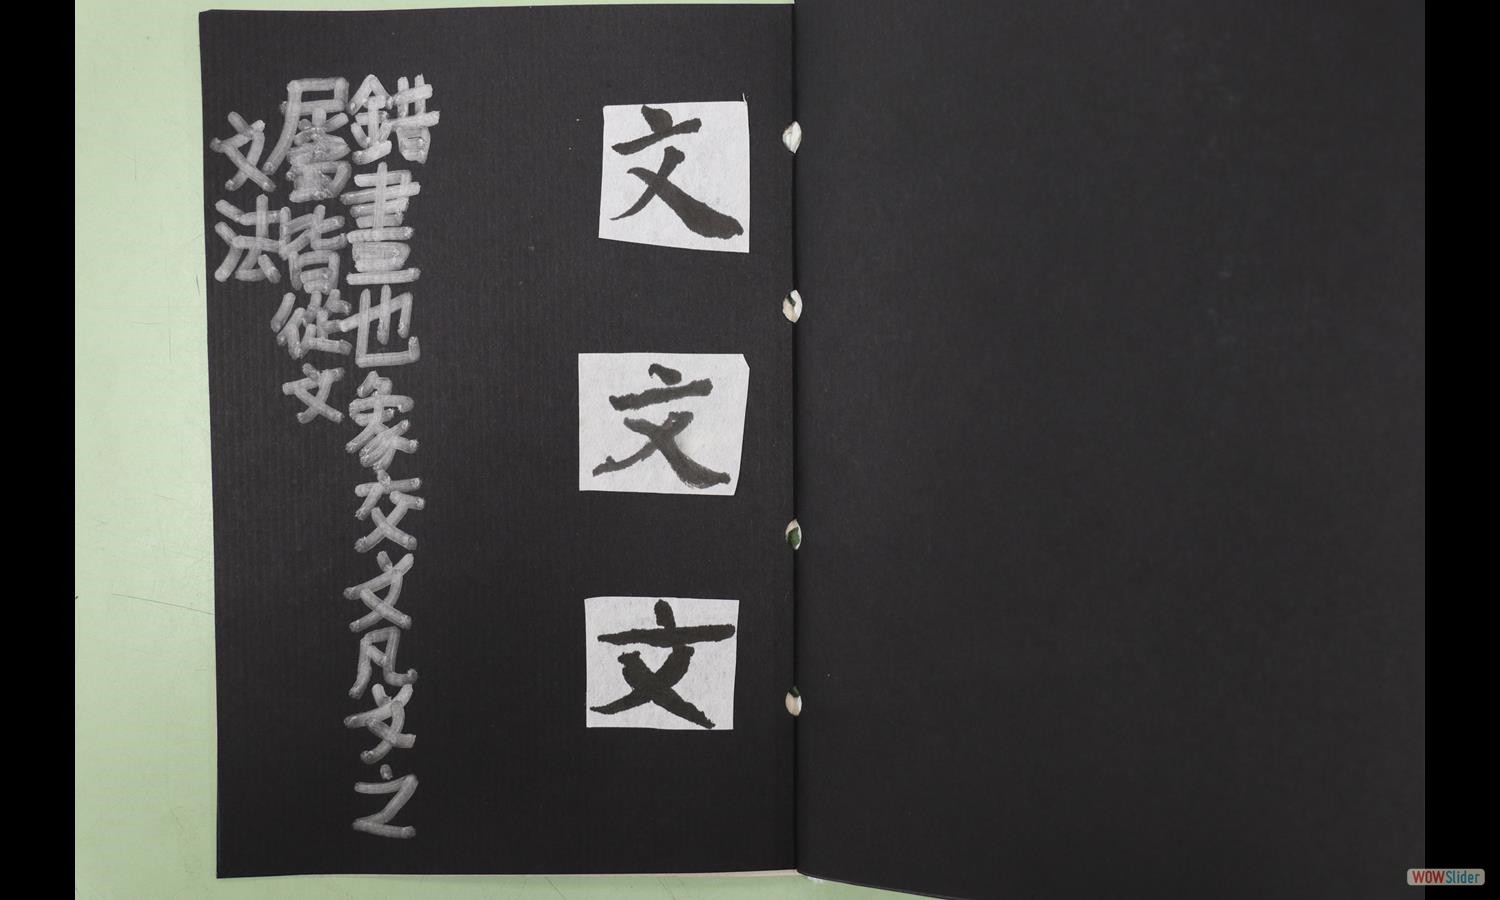 文
文
文
錯畫也象交文凡文之
屬皆從文
文法
WOWSlider